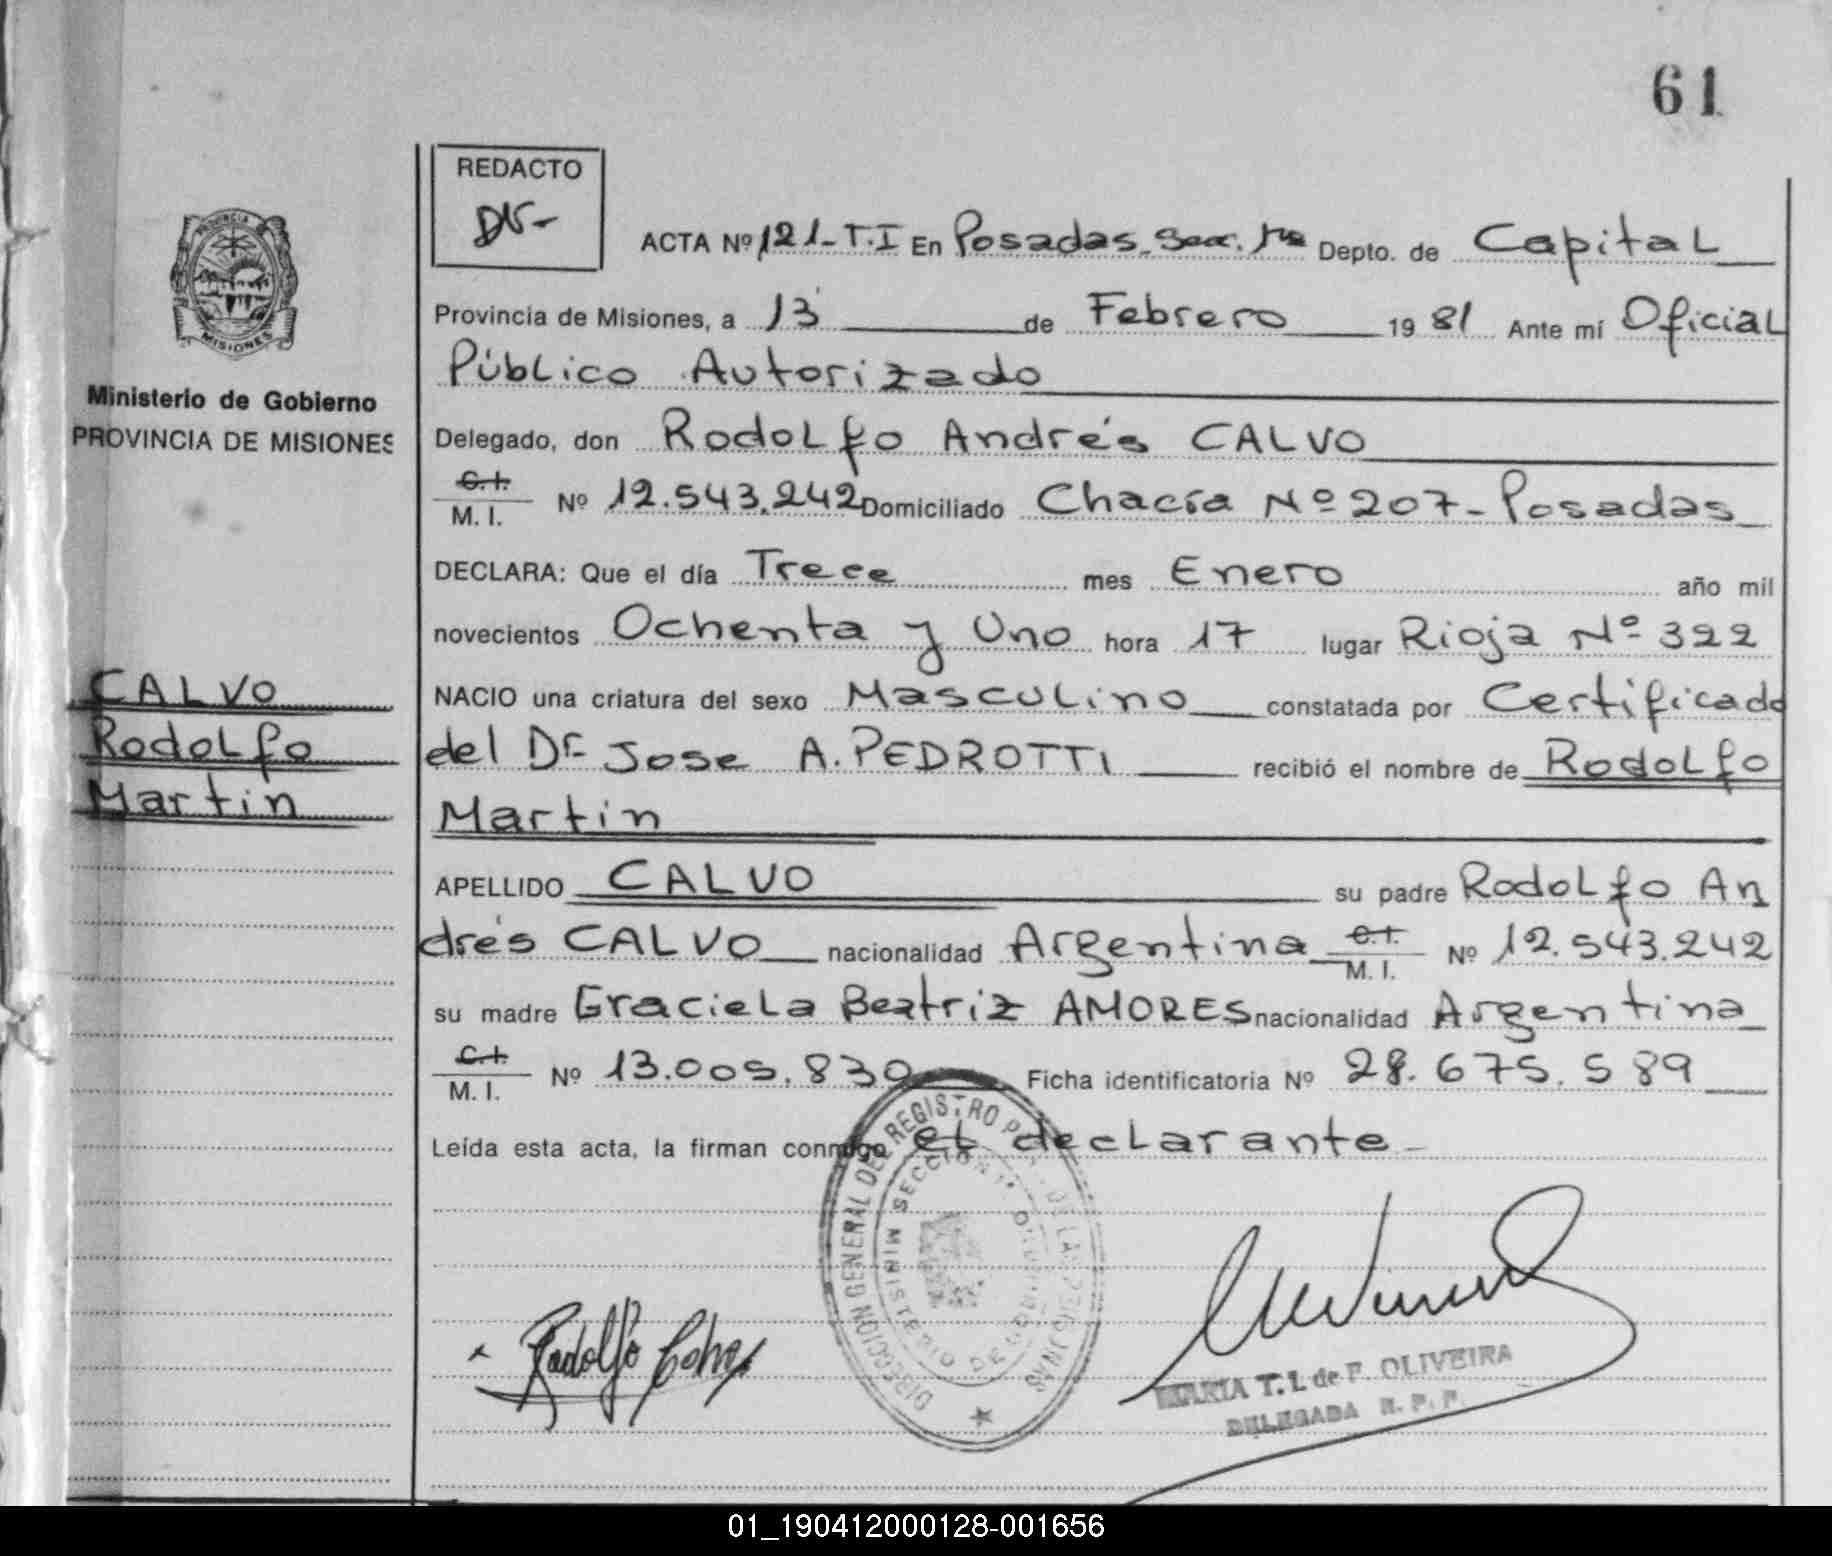 61
REDACTO
PROVINCIA
MISIONES
ACTA Nº 121-T.I En Posadas Secc. 1ra Depto. de Capital
Provincia de Misiones, a 13 de Febrero 1981 Ante mí Oficial
Ministerio de Gobierno
PROVINCIA DE MISIONES
Público Autorizado
Delegado, don Rodolfo Andrés CALVO
C.I.
M. I. Nº 12.543.242 Domiciliado Chacra Nº 207- Posadas
DECLARA: Que el día Trece mes Enero año mil
novecientos Ochenta y Uno hora 17 lugar Rioja Nº 322
CALVO
Rodolfo
Martin
NACIO una criatura del sexo Masculino constatada por Certificado
del Dr Jose A. PEDROTTI recibió el nombre de Rodolfo
Martin
APELLIDO CALVO su padre Rodolfo An
drés CALVO nacionalidad Argentina C.I. M. I. Nº 12.543.242
su madre Graciela Beatriz AMORES nacionalidad Argentina
C.I.
M. I. Nº 13.005.830 Ficha identificatoria Nº 28.675.589
Leída esta acta, la firman conmigo el declarante-
DIRECCION GENERAL DEL REGISTRO DE LAS PERSONAS
SECCION 1ª
MINISTERIO DE GOBIERNO
Rodolfo
MARIA T. I. de F. OLIVEIRA
DELEGADA R. P. P.
01_190412000128-001656